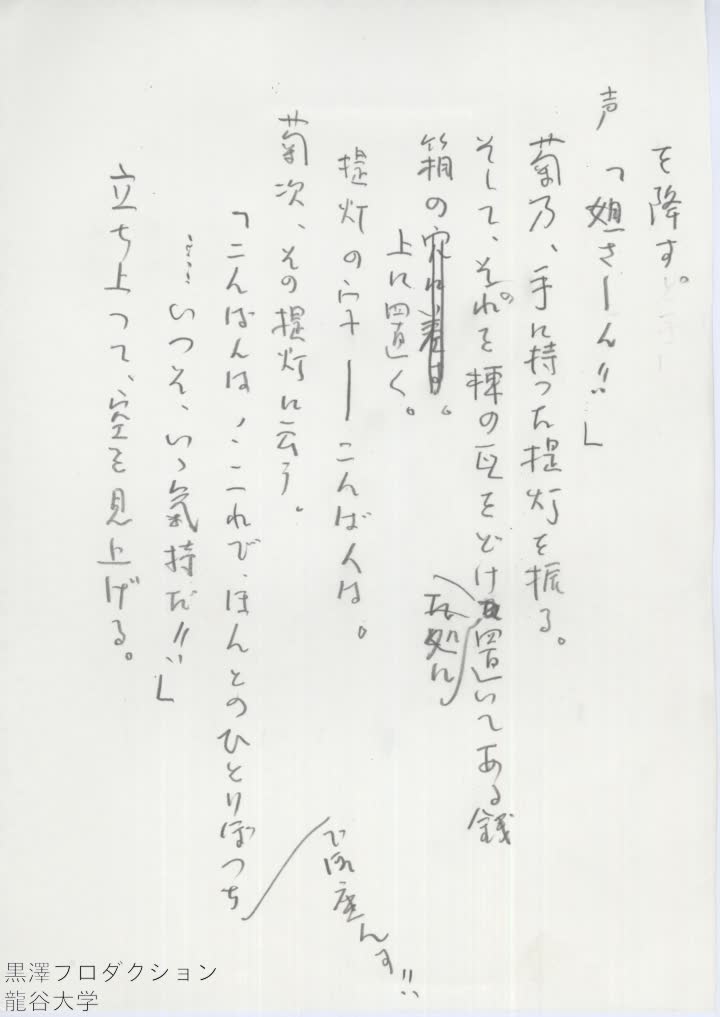 を降す。
声「姐さーん!!」
菊乃、手に持った提灯を振る。
そして、それを棟の瓦をどけた処に置いてある銭
箱の穴に着け。
上に置く。
提灯の字――こんばんは。
菊次、その提灯に云う。
「こんばんは、これで、ほんとのひとりぼっち
で御座んす!!
……いっそ、いゝ気持だ!!」
立ち上って、空を見上げる。
黒澤プロダクション
龍谷大学